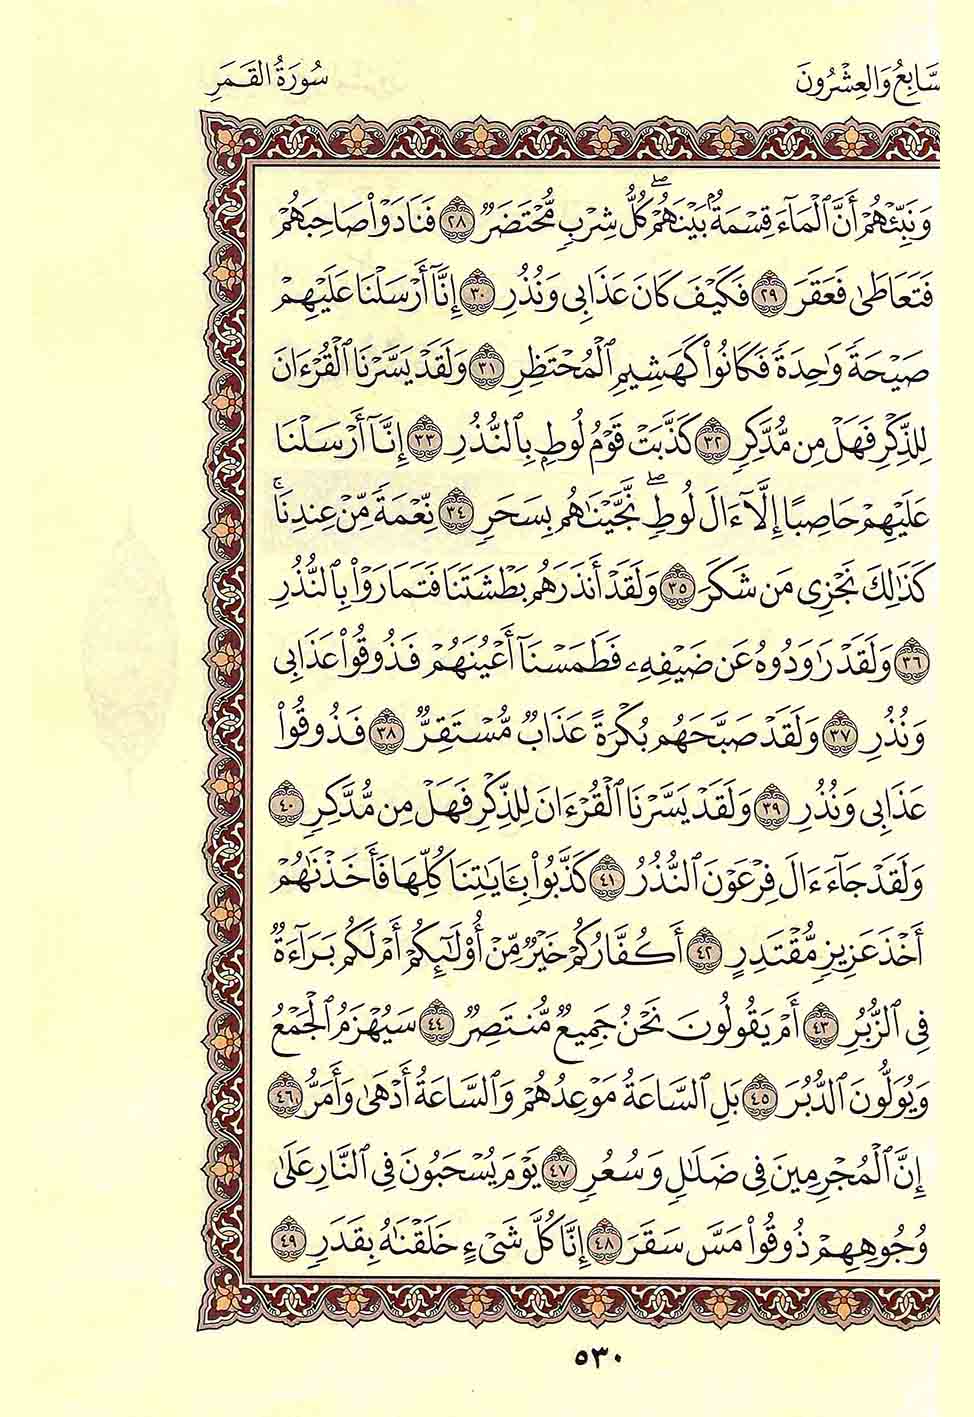 سَّابِعُ وَالْعِشْرُونَ
سُورَةُ الْقَمَرِ
وَنَبِّئْهُمْ أَنَّ ٱلْمَآءَ قِسْمَةٌۢ بَيْنَهُمْ ۖ كُلُّ شِرْبٍ مُّحْتَضَرٌ ٢٨ فَنَادَوْا۟ صَاحِبَهُمْ
فَتَعَاطَىٰ فَعَقَرَ ٢٩ فَكَيْفَ كَانَ عَذَابِى وَنُذُرِ ٣٠ إِنَّآ أَرْسَلْنَا عَلَيْهِمْ
صَيْحَةً وَٰحِدَةً فَكَانُوا۟ كَهَشِيمِ ٱلْمُحْتَظِرِ ٣١ وَلَقَدْ يَسَّرْنَا ٱلْقُرْءَانَ
لِلذِّكْرِ فَهَلْ مِن مُّدَّكِرٍ ٣٢ كَذَّبَتْ قَوْمُ لُوطٍۭ بِٱلنُّذُرِ ٣٣ إِنَّآ أَرْسَلْنَا
عَلَيْهِمْ حَاصِبًا إِلَّآ ءَالَ لُوطٍ ۖ نَّجَّيْنَٰهُم بِسَحَرٍ ٣٤ نِّعْمَةً مِّنْ عِندِنَا ۚ
كَذَٰلِكَ نَجْزِى مَن شَكَرَ ٣٥ وَلَقَدْ أَنذَرَهُم بَطْشَتَنَا فَتَمَارَوْا۟ بِٱلنُّذُرِ
٣٦ وَلَقَدْ رَٰوَدُوهُ عَن ضَيْفِهِۦ فَطَمَسْنَآ أَعْيُنَهُمْ فَذُوقُوا۟ عَذَابِى
وَنُذُرِ ٣٧ وَلَقَدْ صَبَّحَهُم بُكْرَةً عَذَابٌ مُّسْتَقِرٌّ ٣٨ فَذُوقُوا۟
عَذَابِى وَنُذُرِ ٣٩ وَلَقَدْ يَسَّرْنَا ٱلْقُرْءَانَ لِلذِّكْرِ فَهَلْ مِن مُّدَّكِرٍ ٤٠
وَلَقَدْ جَآءَ ءَالَ فِرْعَوْنَ ٱلنُّذُرُ ٤١ كَذَّبُوا۟ بِـَٔايَٰتِنَا كُلِّهَا فَأَخَذْنَٰهُمْ
أَخْذَ عَزِيزٍ مُّقْتَدِرٍ ٤٢ أَكُفَّارُكُمْ خَيْرٌ مِّنْ أُو۟لَٰٓئِكُمْ أَمْ لَكُم بَرَآءَةٌ
فِى ٱلزُّبُرِ ٤٣ أَمْ يَقُولُونَ نَحْنُ جَمِيعٌ مُّنتَصِرٌ ٤٤ سَيُهْزَمُ ٱلْجَمْعُ
وَيُوَلُّونَ ٱلدُّبُرَ ٤٥ بَلِ ٱلسَّاعَةُ مَوْعِدُهُمْ وَٱلسَّاعَةُ أَدْهَىٰ وَأَمَرُّ ٤٦
إِنَّ ٱلْمُجْرِمِينَ فِى ضَلَٰلٍ وَسُعُرٍ ٤٧ يَوْمَ يُسْحَبُونَ فِى ٱلنَّارِ عَلَىٰ
وُجُوهِهِمْ ذُوقُوا۟ مَسَّ سَقَرَ ٤٨ إِنَّا كُلَّ شَىْءٍ خَلَقْنَٰهُ بِقَدَرٍ ٤٩
٥٣٠